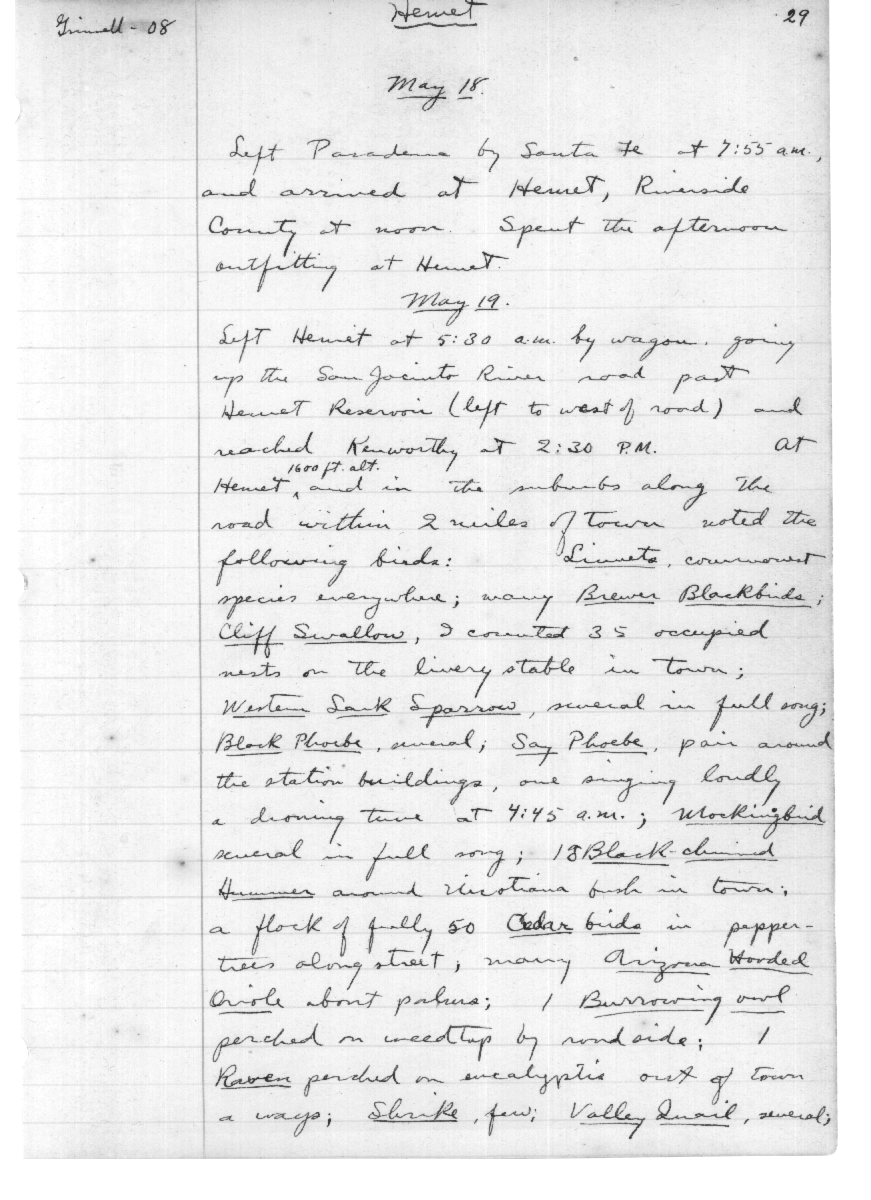 Grinnell - 08
Hemet
29
May 18.
Left Pasadena by Santa Fe at 7:55 a.m.,
and arrived at Hemet, Riverside
County at noon. Spent the afternoon
outfitting at Hemet.
May 19.
Left Hemet at 5:30 a.m. by wagon. going
up the San Jacinto River road past
Hemet Reservoir (left to west of road) and
reached Kenworthy at 2:30 P.M. At
1600 ft. alt.
Hemet ‸ and in the suburbs along the
road within 2 miles of town noted the
following birds: Linnets, commonest
species everywhere; many Brewer Blackbirds;
Cliff Swallow, I counted 35 occupied
nests on the livery stable in town;
Western Lark Sparrow, several in full song;
Black Phoebe, several; Say Phoebe, pair around
the station buildings, one singing loudly
a droning tune at 4:45 a.m.; Mockingbird
several in full song; 1♂ Black-chinned
Hummer around Nicotiana bush in town;
a flock of fully 50 Cedar birds in pepper-
trees along street; many Arizona Hooded
Oriole about palms; 1 Burrowing owl
perched on weedtop by roadside; 1
Raven perched on eucalyptis out of town
a ways; Shrike, few; Valley Quail, several;